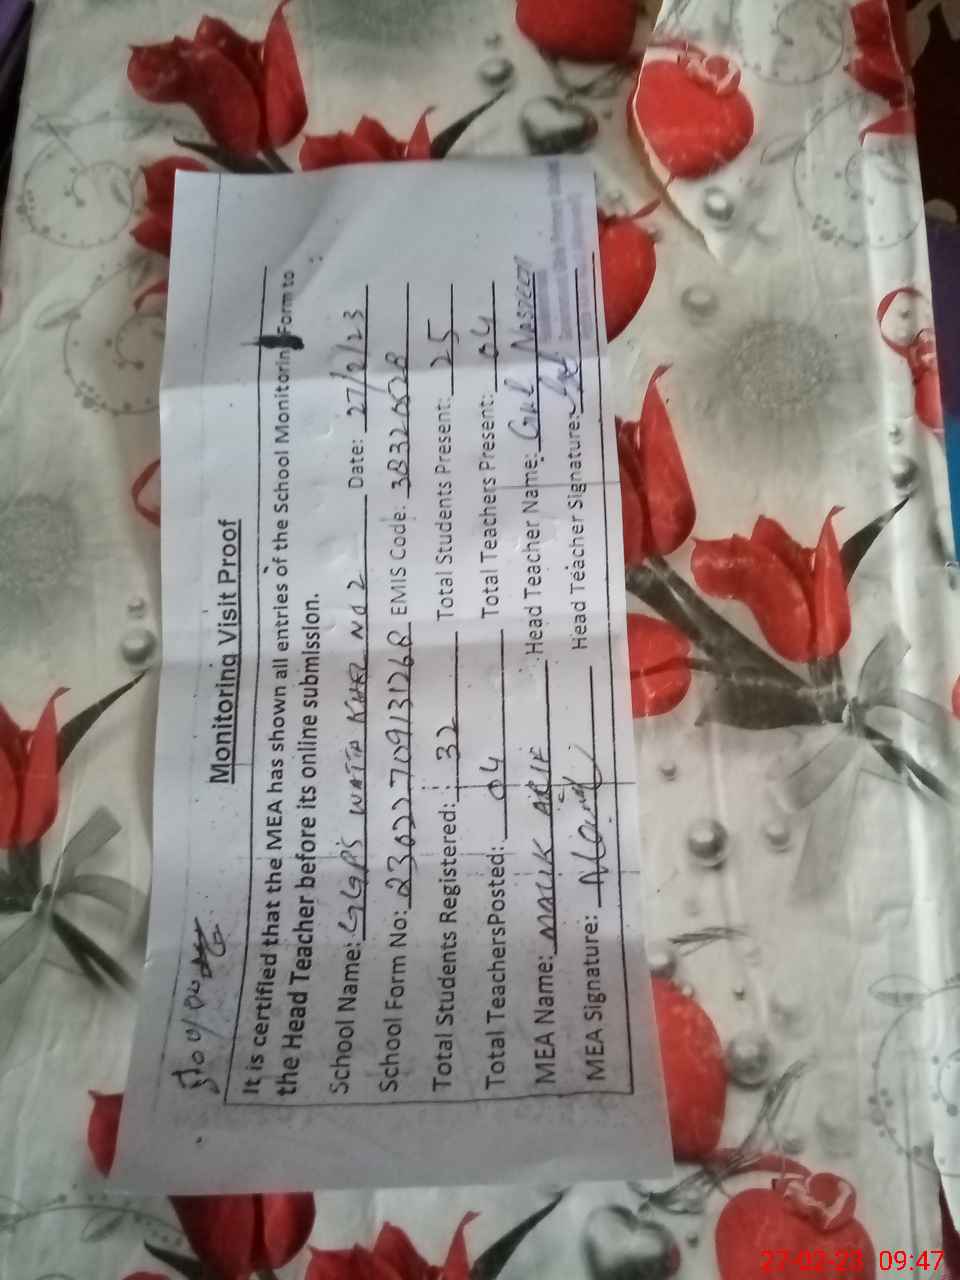 Monitoring Visit Proof
It is certified that the MEA has shown all entries of the School Monitoring Form to
the Head Teacher before its online submission.
School Name: GGPS WATTA KHEL NO 2 Date: 27/2/23
School Form No: 2302270913126B EMIS Code:
Total Students Registered: 32 Total Students Present: 25
Total TeachersPosted: 04 Total Teachers Present: 04
MEA Name: MALIK ARIF Head Teacher Name: Gul Nasreen
MEA Signature: Head Teacher Signature:
27-02-23 09:47